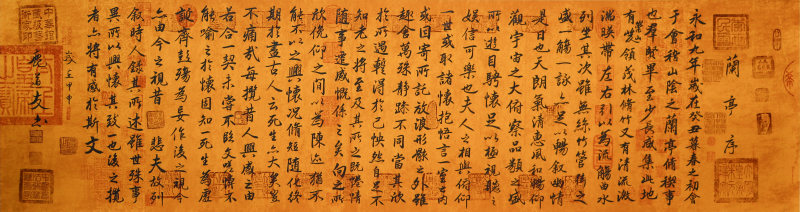 蘭亭序
永和九年歲在癸丑暮春之初會
于會稽山陰之蘭亭脩禊事
也羣賢畢至少長咸集此地
有崇山峻領茂林脩竹又有清流激
湍暎帶左右引以為流觴曲水
列坐其次雖無絲竹管弦之
盛一觴一詠亦足以暢叙幽情
是日也天朗氣清惠風和暢仰
觀宇宙之大俯察品類之盛
所以遊目騁懷足以極視聽之
娛信可樂也夫人之相與俯仰
一世或取諸懷抱悟言一室之內
或因寄所託放浪形骸之外雖
趣舍萬殊靜躁不同當其欣
於所遇輒得於己怏然自足不
知老之將至及其所之既惓情
隨事遷感慨係之矣向之所
欣俛仰之間以為陳迹猶不
能不以之興懷況脩短隨化終
期於盡古人云死生亦大矣豈
不痛哉每攬昔人興感之由
若合一契未嘗不臨文嗟悼不
能喻之於懷固知一死生為虛
誕齊彭殤為妄作後之視今
亦由今之視昔悲夫故列
叙時人錄其所述雖世殊事
異所以興懷其致一也後之攬
者亦將有感於斯文